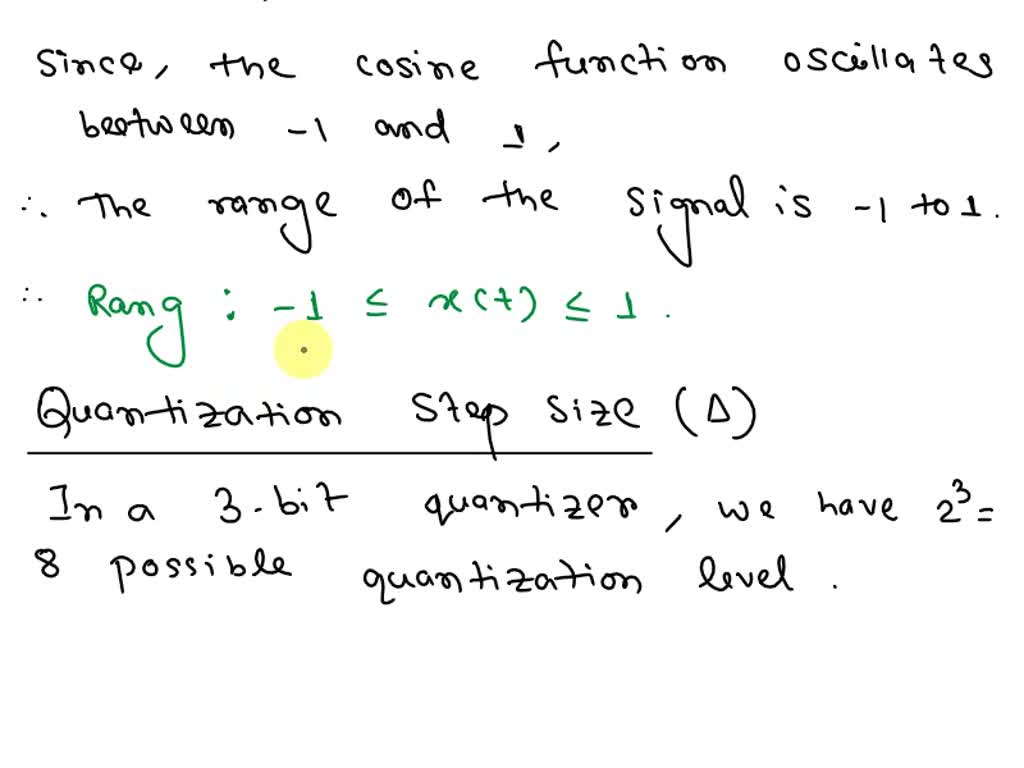 Since, the cosine function oscillates
between -1 and 1,
∴ The range of the signal is -1 to 1.
∴ Rang : -1 ≤ x(t) ≤ 1 .
Quantization Step size (Δ)
In a 3-bit quantizer, we have 2³ =
8 possible quantization level .